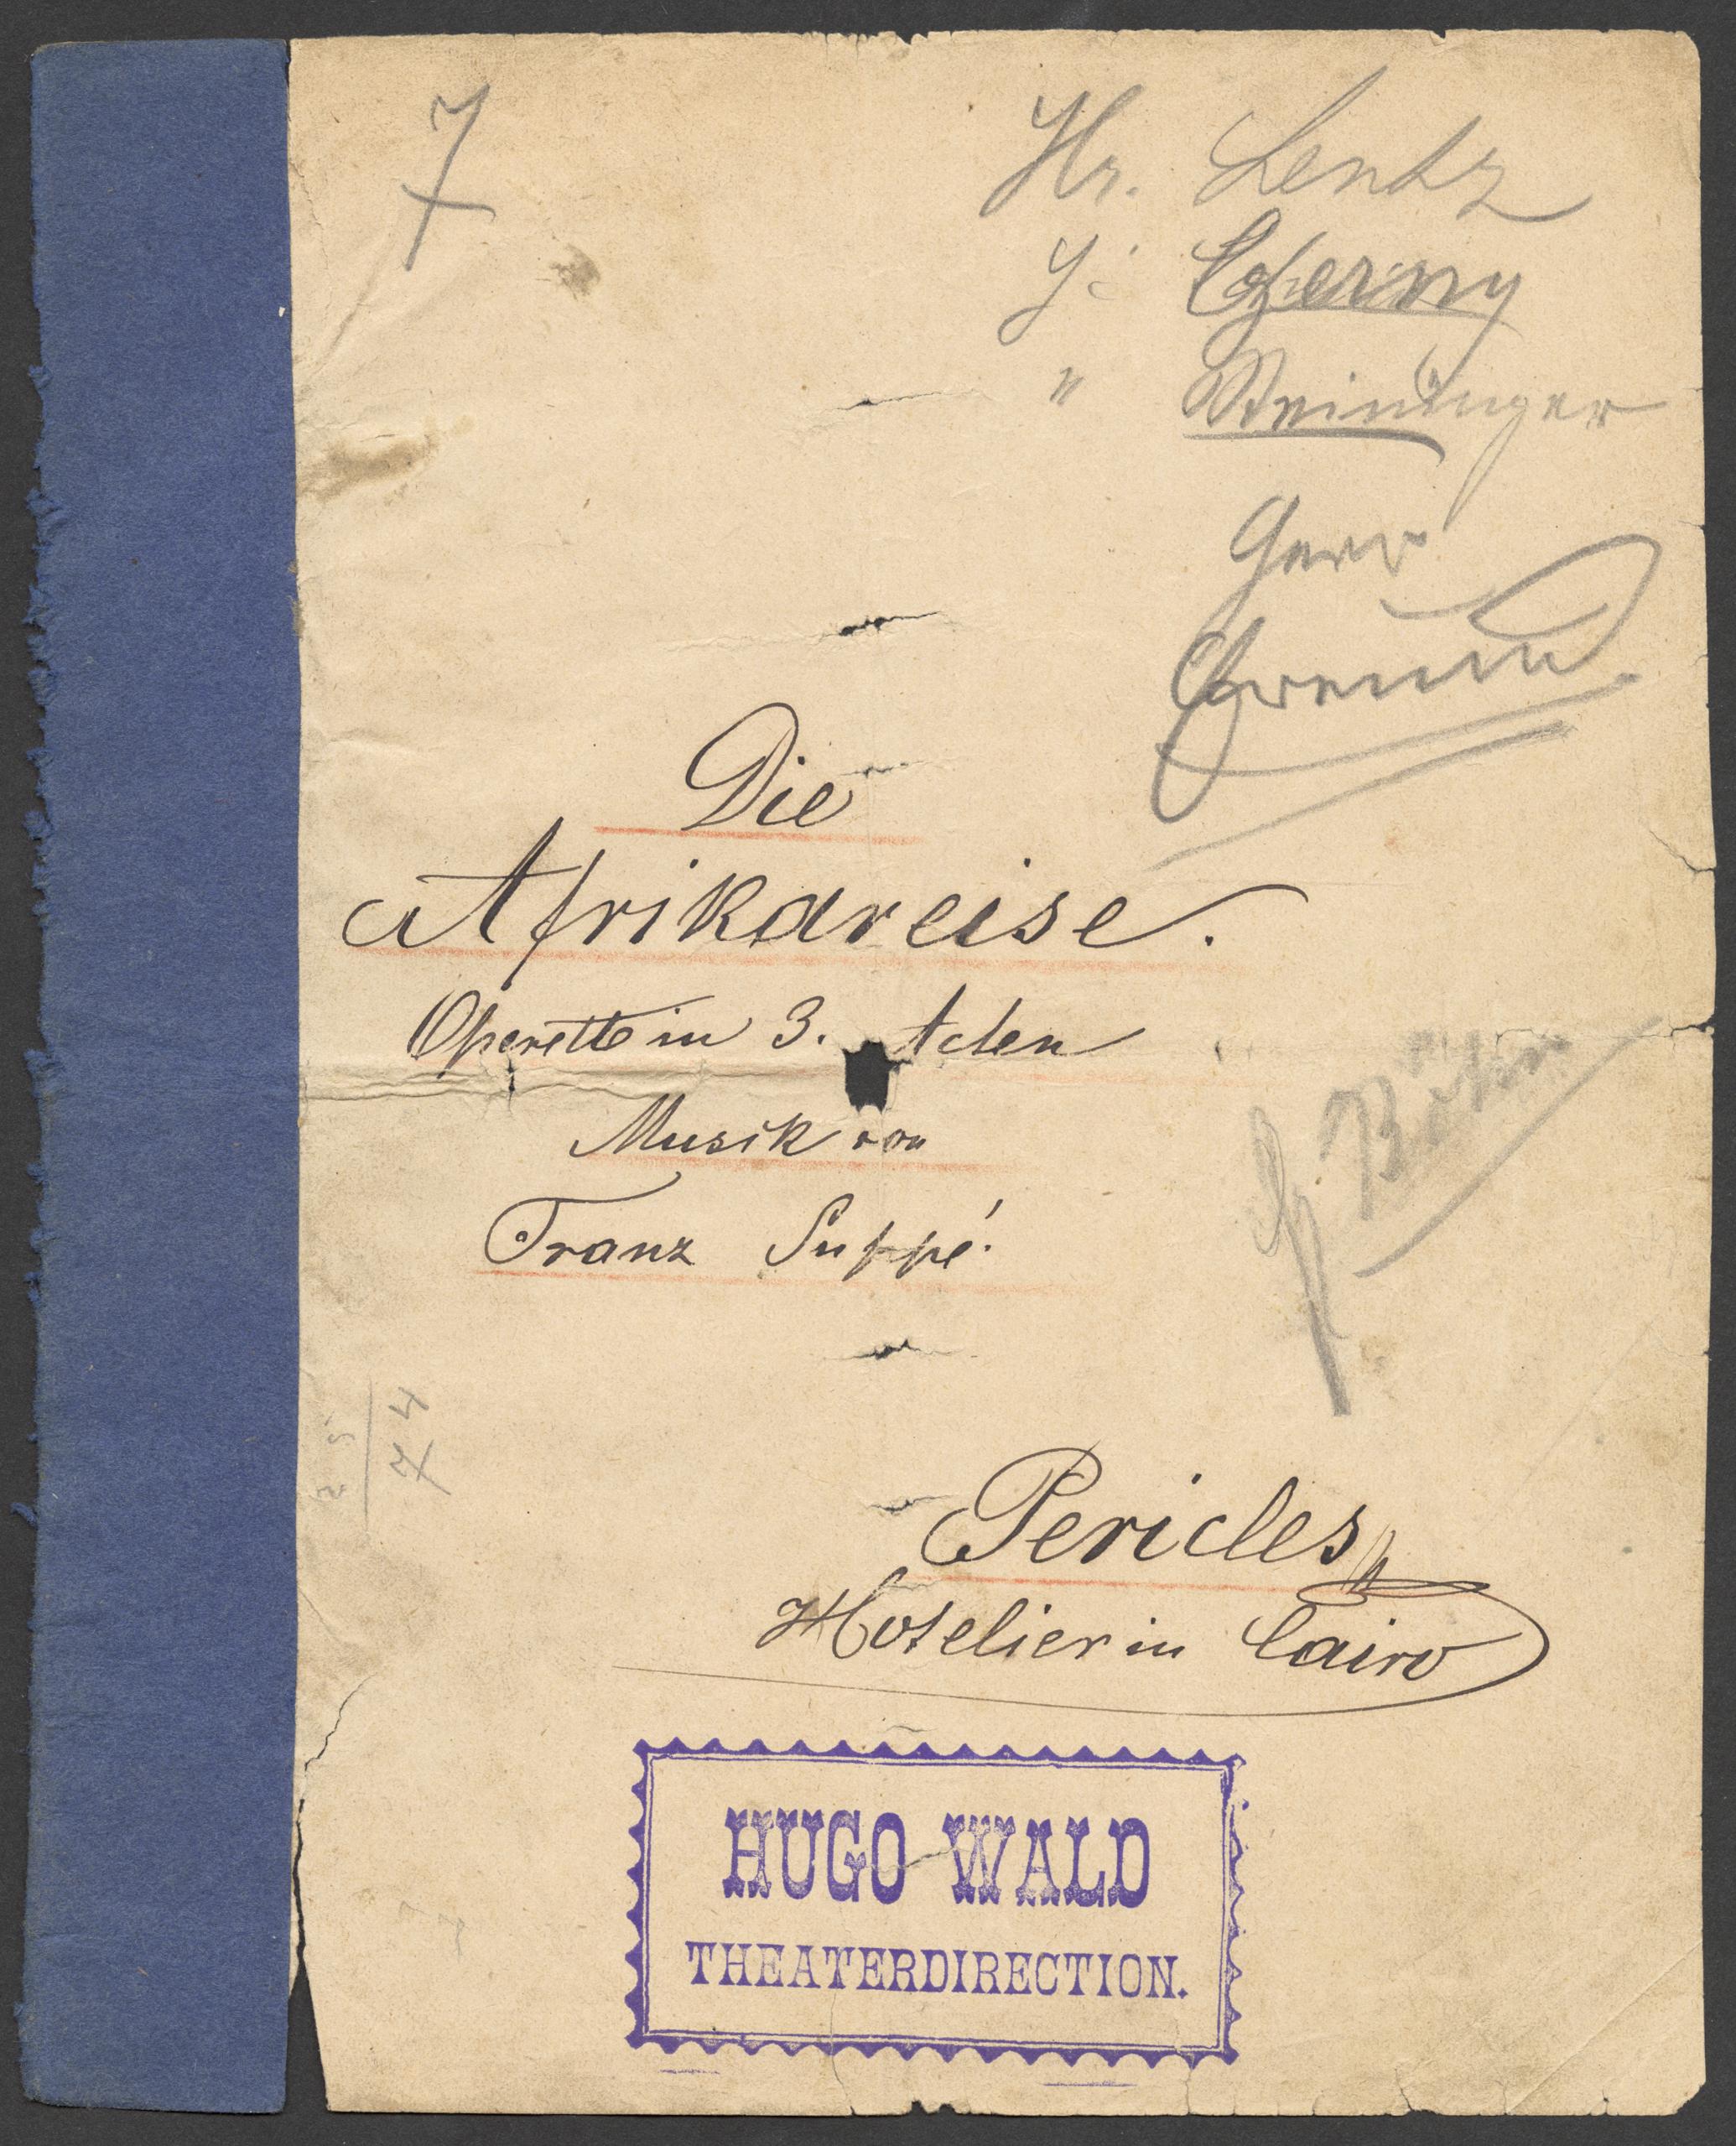 7
Hr. Lentz
H: Czerny
" Weininger
Herr
Die
Afrikareise.
Operette in 3. Acten
Musik von
Franz Suppé.
H Böhm
25
74
Pericles
Hotelier in Cairo
HUGO WALD
THEATERDIRECTION.